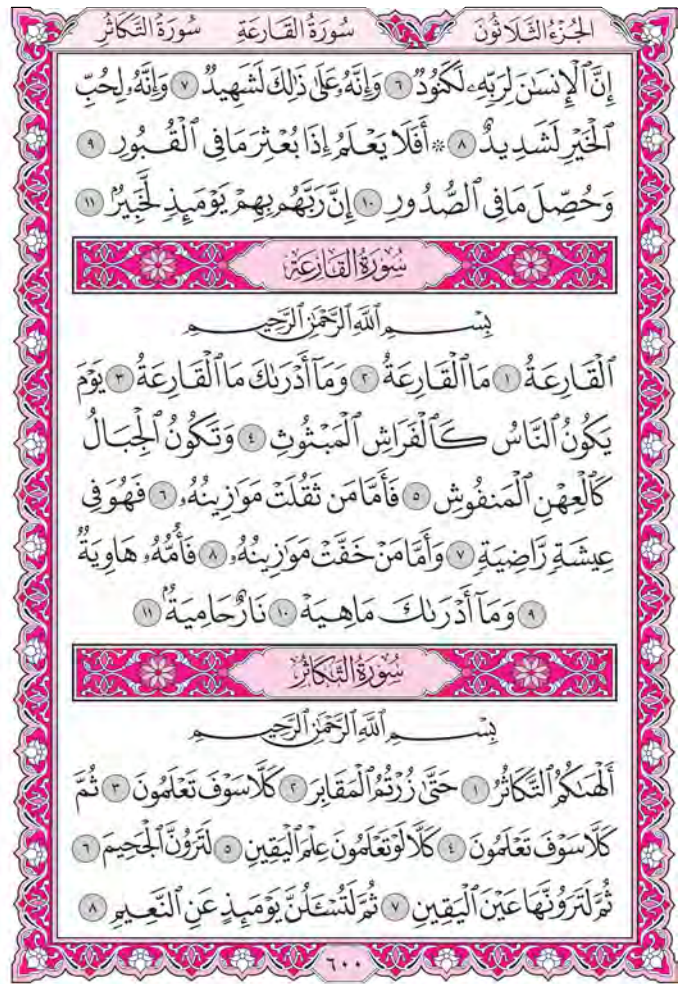 الجُزْءُ الثَّلَاثُونَ سُورَةُ القَارِعَةِ سُورَةُ التَّكَاثُرِ
إِنَّ ٱلْإِنسَٰنَ لِرَبِّهِۦ لَكَنُودٌ ٦ وَإِنَّهُۥ عَلَىٰ ذَٰلِكَ لَشَهِيدٌ ٧ وَإِنَّهُۥ لِحُبِّ
ٱلْخَيْرِ لَشَدِيدٌ ٨ ۞ أَفَلَا يَعْلَمُ إِذَا بُعْثِرَ مَا فِى ٱلْقُبُورِ ٩
وَحُصِّلَ مَا فِى ٱلصُّدُورِ ١٠ إِنَّ رَبَّهُم بِهِمْ يَوْمَئِذٍ لَّخَبِيرٌۢ ١١
سُورَةُ القَارِعَةِ
بِسْمِ ٱللَّهِ ٱلرَّحْمَٰنِ ٱلرَّحِيمِ
ٱلْقَارِعَةُ ١ مَا ٱلْقَارِعَةُ ٢ وَمَآ أَدْرَىٰكَ مَا ٱلْقَارِعَةُ ٣ يَوْمَ
يَكُونُ ٱلنَّاسُ كَٱلْفَرَاشِ ٱلْمَبْثُوثِ ٤ وَتَكُونُ ٱلْجِبَالُ
كَٱلْعِهْنِ ٱلْمَنفُوشِ ٥ فَأَمَّا مَن ثَقُلَتْ مَوَٰزِينُهُۥ ٦ فَهُوَ فِى
عِيشَةٍ رَّاضِيَةٍ ٧ وَأَمَّا مَنْ خَفَّتْ مَوَٰزِينُهُۥ ٨ فَأُمُّهُۥ هَاوِيَةٌ
٩ وَمَآ أَدْرَىٰكَ مَا هِيَهْ ١٠ نَارٌ حَامِيَةٌۢ ١١
سُورَةُ التَّكَاثُرِ
بِسْمِ ٱللَّهِ ٱلرَّحْمَٰنِ ٱلرَّحِيمِ
أَلْهَىٰكُمُ ٱلتَّكَاثُرُ ١ حَتَّىٰ زُرْتُمُ ٱلْمَقَابِرَ ٢ كَلَّا سَوْفَ تَعْلَمُونَ ٣ ثُمَّ
كَلَّا سَوْفَ تَعْلَمُونَ ٤ كَلَّا لَوْ تَعْلَمُونَ عِلْمَ ٱلْيَقِينِ ٥ لَتَرَوُنَّ ٱلْجَحِيمَ ٦
ثُمَّ لَتَرَوُنَّهَا عَيْنَ ٱلْيَقِينِ ٧ ثُمَّ لَتُسْـَٔلُنَّ يَوْمَئِذٍ عَنِ ٱلنَّعِيمِ ٨
٦٠٠